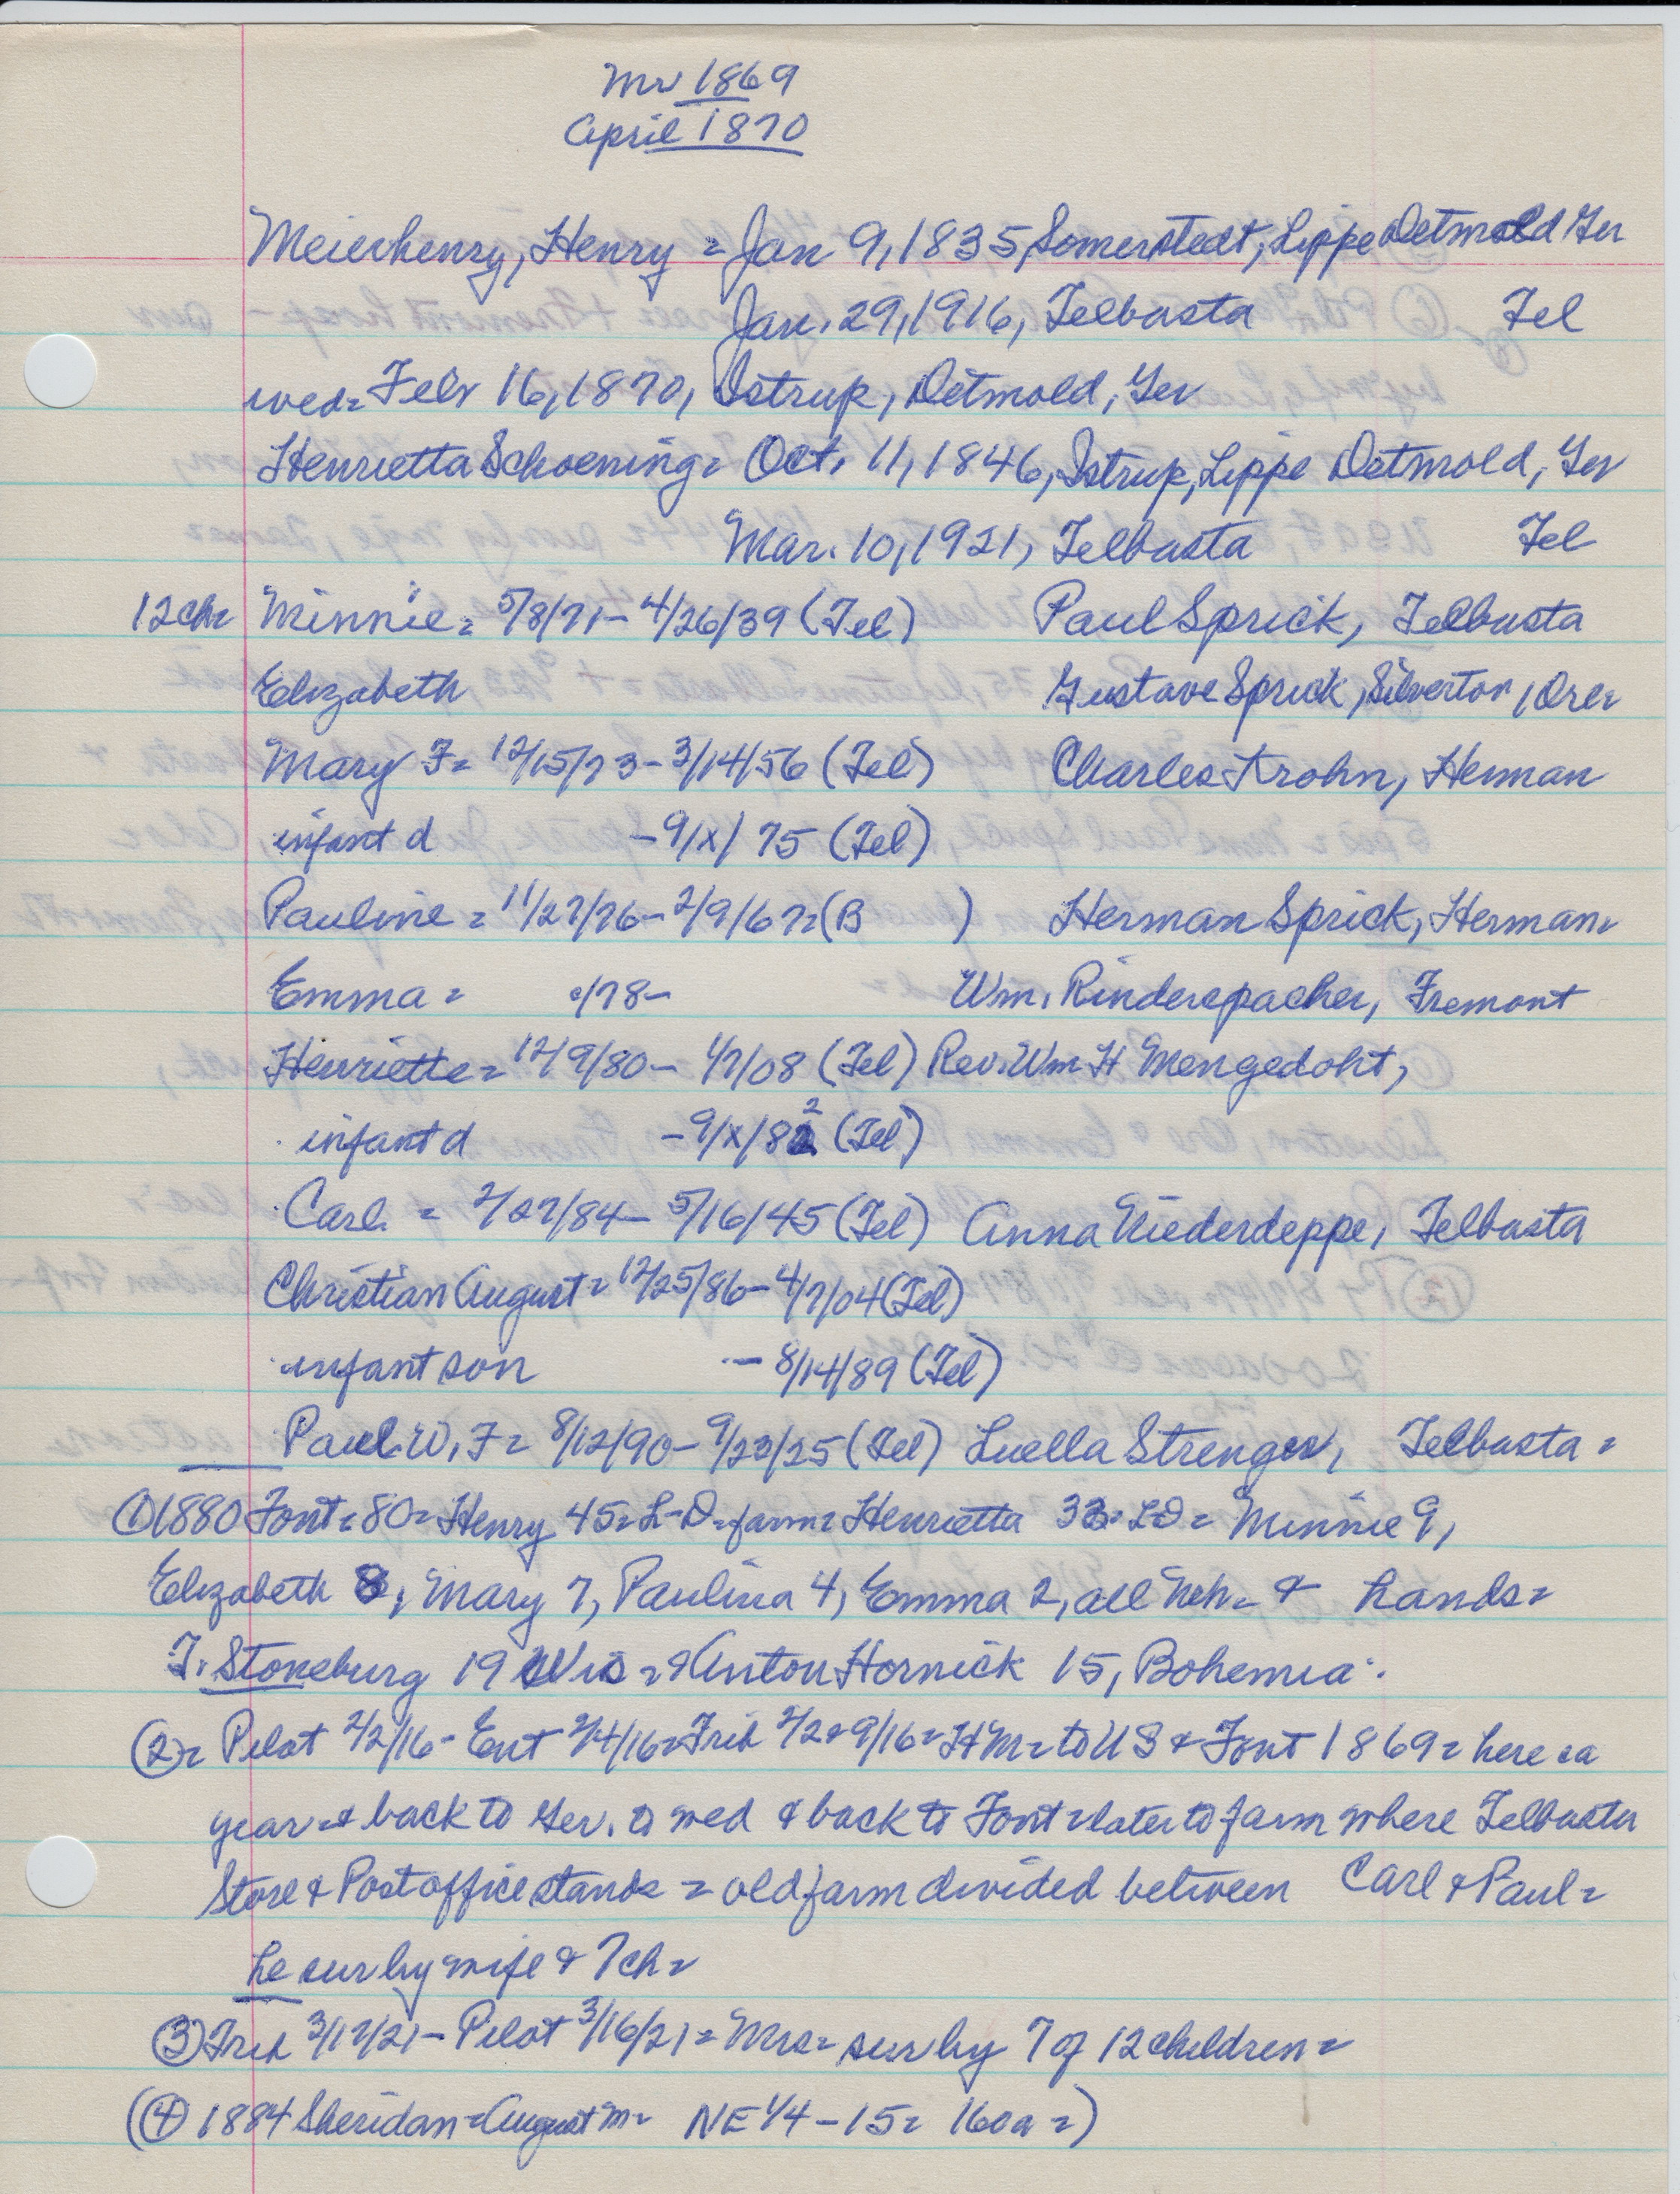 Mr 1869
April 1870
Meierhenry, Henry = Jan 9, 1835, Somerstedt, Lippe Detmold Ger
Jan. 29, 1916, Telbasta Tel
wed = Feb 16, 1870, Istrup, Detmold, Ger
Henrietta Schoening = Oct. 11, 1846, Istrup, Lippe Detmold, Ger
Mar. 10, 1921, Telbasta Tel
12 ch = Minnie = 5/8/71 - 4/26/39 (Tel) Paul Sprick, Telbasta
Elizabeth Gustave Sprick, Silverton, Ore =
Mary F = 12/15/73 - 3/14/56 (Tel) Charles Krohn, Herman
infant d - 9/x/75 (Tel)
Pauline = 11/27/76 - 2/9/67 = (B ) Herman Sprick, Herman =
Emma = /78 - Wm. Rinderspacher, Fremont
Henriette = 12/9/80 - 1/7/08 (Tel) Rev. Wm H Mengedoht,
infant d - 9/x/82 2 (Tel)
Carl = 2/27/84 - 5/16/45 (Tel) Anna Niederdeppe, Telbasta
Christian August = 12/25/86 - 4/7/04 (Tel)
infant son - 8/14/89 (Tel)
Paul W. F = 8/12/90 - 9/23/25 (Tel) Luella Strenger, Telbasta =
① 1880 Font = 80 = Henry 45 = L-D = farm = Henrietta 33 = LD = Minnie 9,
Elizabeth 8, Mary 7, Paulina 4, Emma 2, all Neh = & hands =
T. Stoneburg 19 Wis = & Anton Hornick 15, Bohemia.
② = Pilot 2/2/16 - Ent 2/4/16 = Trib 2/2 & 9/16 = HM = to US & Font 1869 = here ca
year = & back to Ger. to wed & back to Font = later to farm where Telbasta
Store & Postoffice stands = old farm divided between Carl & Paul =
he sur by wife & 7 ch =
③ Trib 3/17/21 - Pilot 3/16/21 = Mrs = sur by 7 of 12 children =
(④ 1884 Sheridan = August M = NE 1/4 - 15 = 160a =)